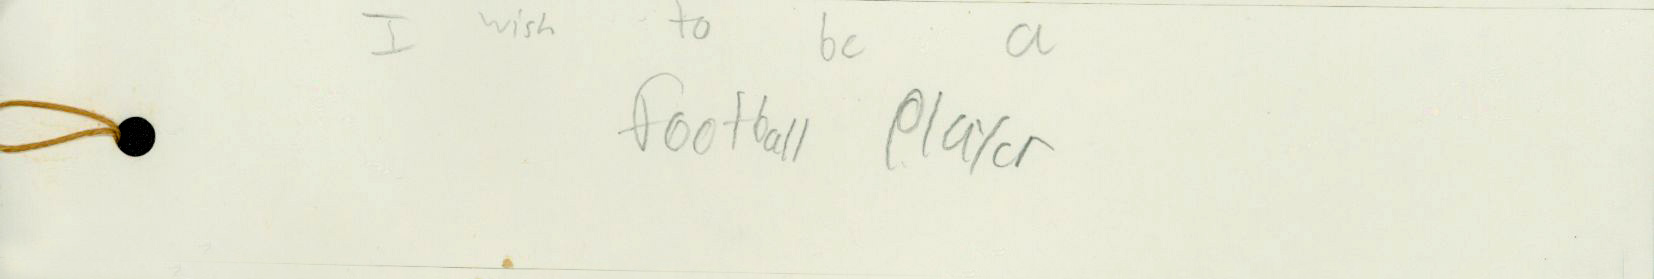 I wish to be a
football Player